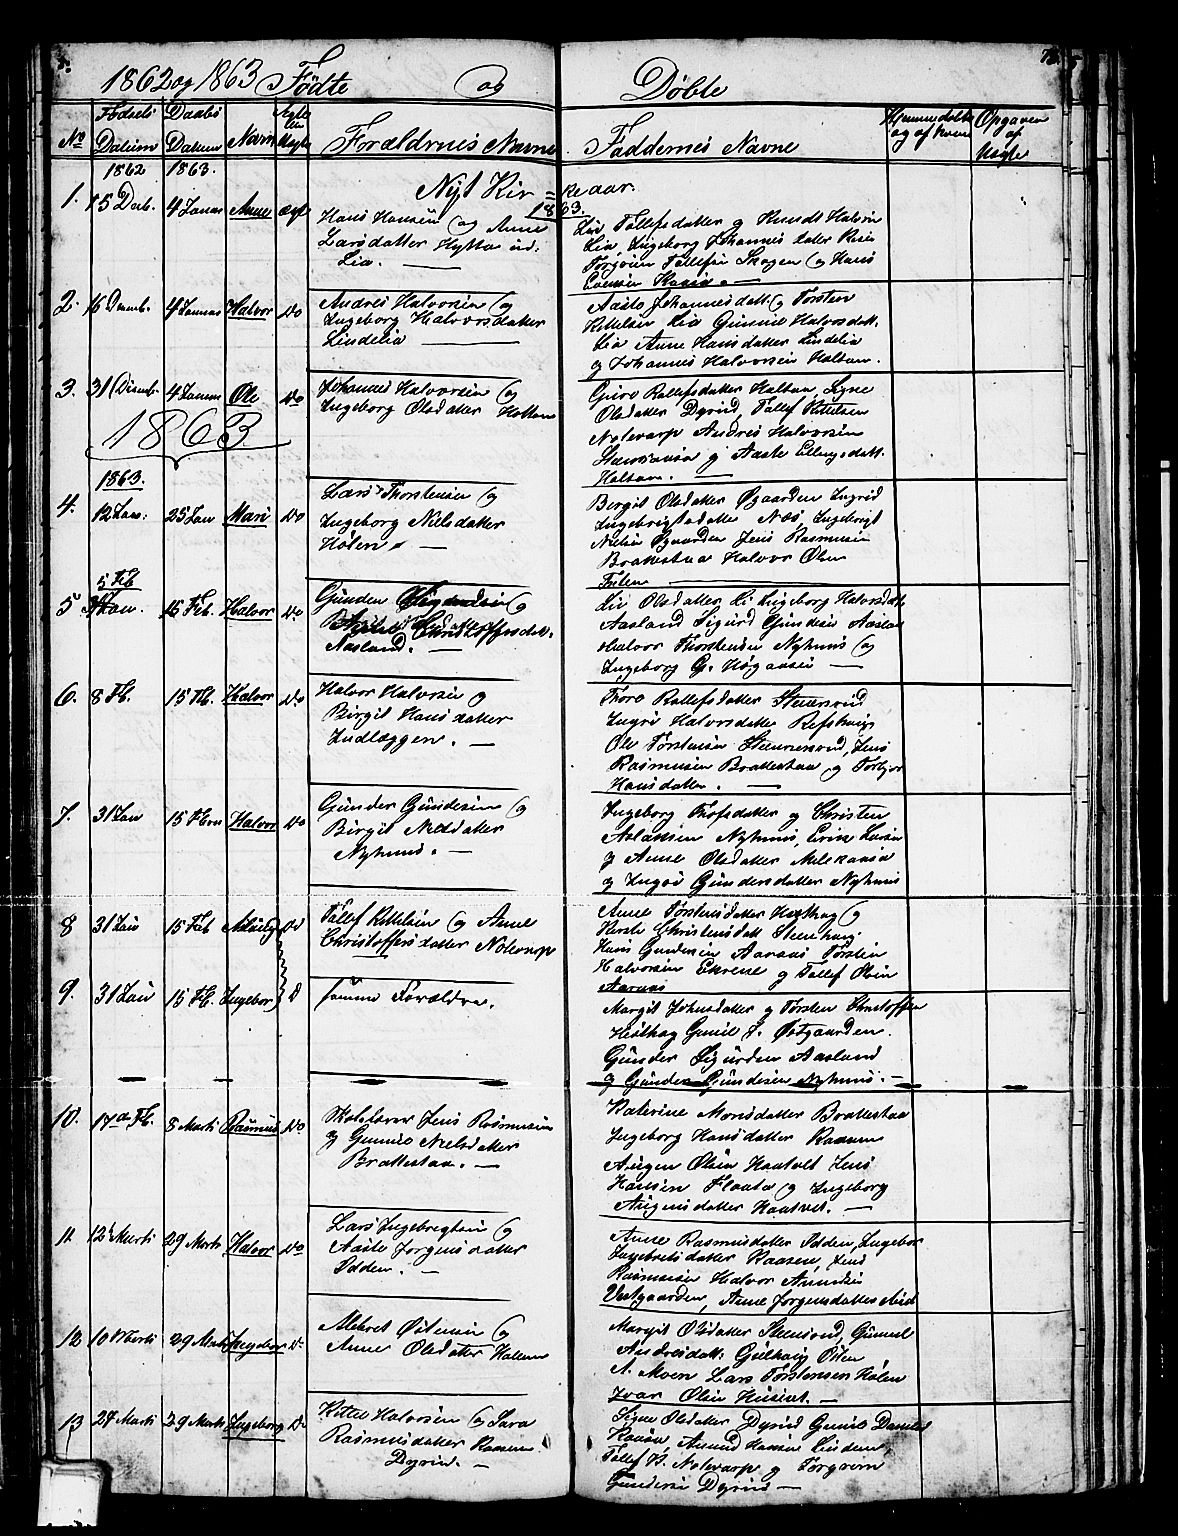 1862 og 1863 Födte og Döbte
No Fødsels Datum Daabs Datum Navn Ægte eller Uægte Forældrenes Navne Faddernes Navne Hjemmedøbte og af hvem Opgaven af Uægte
1862 1863.
Nyt Kirkeaar.
1863.
1. 15 Decb. 4 Januar Anne Ægte
Hans Hansen og Anne
Larsdatter Hytta ud:
Lia.
Liv Tollefsdatter og Knudt Halvorsen
Lia, Ingeborg Johannesdatter Riis
Torgrim Tollefsen Skogen og Hans
2. 16 Decemb. 4 Januar Halvor Do
Andres Halvorsen og
Ingeborg Halvorsdatter
Lindelia
Aaste Johannesdatt. og Torsten
Kittelsen Lia Gunnil Halvorsdatt.
Lia Anne Hansdatter Lindelia
og Johannes Halvorsen Holtan.
3. 31 Decemb. 4 Januar Ole Do
Johannes Halvorsen og
Ingeborg Olsdatter Holtan
Guro Rollefsdatter Holtan, Signe
Olsdatter Dyrud, Tollef Kittelsen
Notevarp Andres Halvorsen
og Aaste Ellingsdatt.
Holtan.
1863
1863.
4. 12 Jan: 25 Jan Mari Do
Lars Thorstensen og
Ingeborg Nilsdatter
Holen.
Bergit Olsdatter Øgaarden Ingrid
Ingebrigtsdatter Næs, Ingebrigt
Nielsen Øgaarden Jens Rasmusen
Brattestaa Halvor Olsen
5 Feb
5 Jan. 15 Feb. Halvor Do
Gunder Sigurdsen og
Christoffersdat.
Aasland.
Liv Olsdatter Li Ingeborg Halvorsdatt.
Aasland Sigurd Gundersen Aasland
Halvor Thorstensen Nyhuus og
Ingeborg G. Høgaasen
6. 8 Fb. 15 Fb. Halvor Do
Halvor Halvorsen og
Birgit Hansdatter
Indlæggen.
Thore Rollefsdatter Steensrud
Ingri Halvorsdatter Refshaug
Ole Torstensen Steensrud, Jens
Rasmusen Brattestaa og Torbjør
Hansdatter.
7. 31 Jan 15 Febr Halvor Do
Gunder Gundersen og
Birgit Nilsdatter
Nyhuus.
Ingeborg Tofsdatter og Christen
Aslaksen Nyhuus, Erik Larsen
og Anne Olsdatter
og Ingri Gundersdatter Nyhuus
8 31 Jan 15 Feb Do
Tollef Kittelsen og Anne
Christoffersdatter Notevarp
Anne Torstensdatter Heithag og
Kirsti Christensdatt Steenhaug.
Hans Gundersen Aaraas Torstein
Halvorsen Ekrene og Tollef Olsen
Aaraas
9. 31 Jan 15 Fb. Ingebor D
Samme Forældre.
Margit Johnsdatter og Torsten Christoffersen
Heithag Gunil J. Østgaarden.
Gunder Sigurdsen Aasland
og Gunder Gundersen Nyhuus.
10. 17de Fb. 8 Marti Rasmus Do
Skolelærer Jens Rasmusen
og Gunnil Nielsdatter
Brattestaa.
Katerine Monsdatter Brattestaa
Ingeborg Hansdatter Raaen
Augen Olsen Haatvet Jens
Hansen Flaata og Ingeborg
Augensdatter Haatvet.
11 12t Marti 29 Marti Halvor Do
Lars Ingebregtsen og
Aaste Jørgensdatter
Idden.
Anne Rasmusdatter Idden, Ingebor
Ingebretsdatter Raasen, Jens
Rasmusen Halvor Amundsen
Vestgaarden, Anne Jørgensdatter
12 10 Marti 29 Marti Ingebor Do
Østensen og
Anne Olsdatter
Margit Olsdatter Steensrud, Gunnil
Andresdatt. Østen
A. Moen Lars Torstensen Holen
Ivar Olsen
13 28 Marti 29 Marti Ingeborg Do
Kittel Halvorsen og Sara
Rasmusdatter Raasen
Dyrud.
Signe Olsdatter Dyrud Gunil
Amund Hansen Linden
Tollef K. Notevarp og Torgrim
Gundersen Dyrud